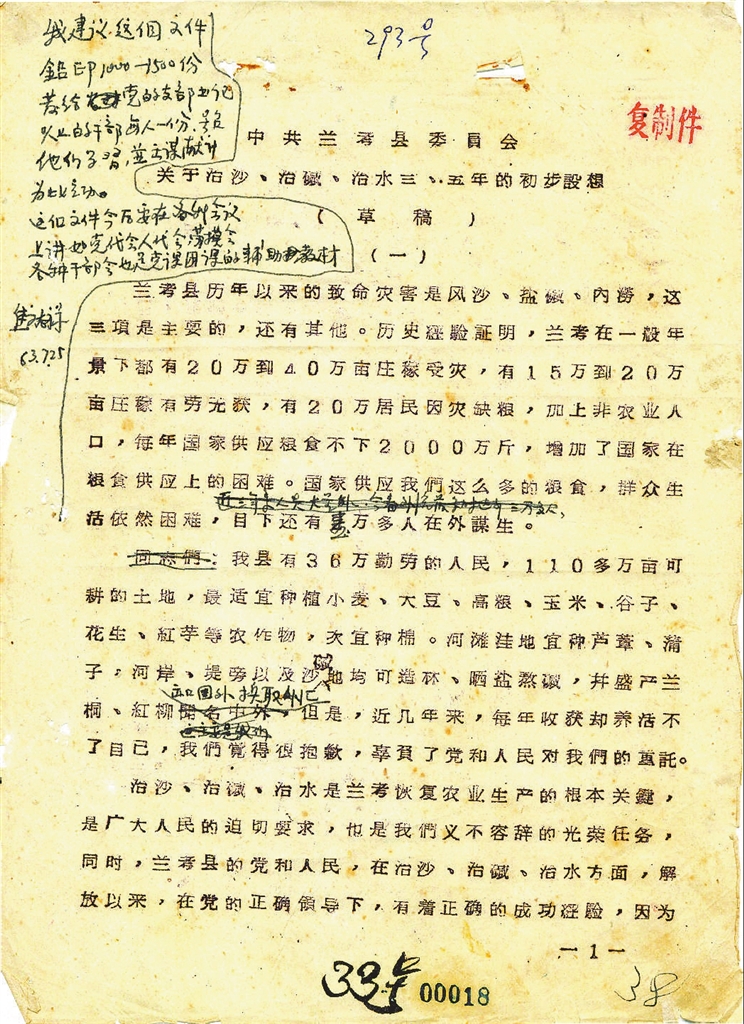 293号
我建议这個文件
鉛印1000—1500份
发给党的支部书记
以上的干部每人一份,号召
他们学习,並主谋献计
为此立功。
这個文件今后要在各种会议
上讲如党代会人代会劳模会
各种干部会也是党课团课的辅助教材
焦裕禄
63.7.25
复制件
中共兰考县委員会
关于治沙、治碱、治水三、五年的初步設想
(草稿)
(一)
兰考县历年以来的致命灾害是风沙、盐碱、內澇,这
三項是主要的,还有其他。历史经驗証明,兰考在一般年
景下都有20万到40万亩庄稼受灾,有15万到20万
亩庄稼有劳无获,有20万居民因灾缺粮,加上非农业人
口,每年国家供应粮食不下2000万斤,增加了国家在
粮食供应上的困难。国家供应我們这么多的粮食,群众生
活依然困难,目下还有万多人在外謀生。
同志們:我县有36万勤劳的人民,110多万亩可
耕的土地,最适宜种植小麦、大豆、高粮、玉米、谷子、
花生、紅芋等农作物,次宜种棉。河滩洼地宜种芦葦、清
子,河岸、堤旁以及沙地均可造林、晒盐熬碱,并盛产兰
出口国外换取外汇
桐、紅柳聞名中外,但是,近几年来,每年收获却养活不
了自己,我們觉得很抱歉,辜負了党和人民对我們的重託。
治沙、治碱、治水是兰考恢复农业生产的根本关鍵,
是广大人民的迫切要求,也是我們义不容辞的光荣任务,
同时,兰考县的党和人民,在治沙、治碱、治水方面,解
放以来,在党的正确領导下,有着正确的成功经驗,因为
—1—
33号
00018
38